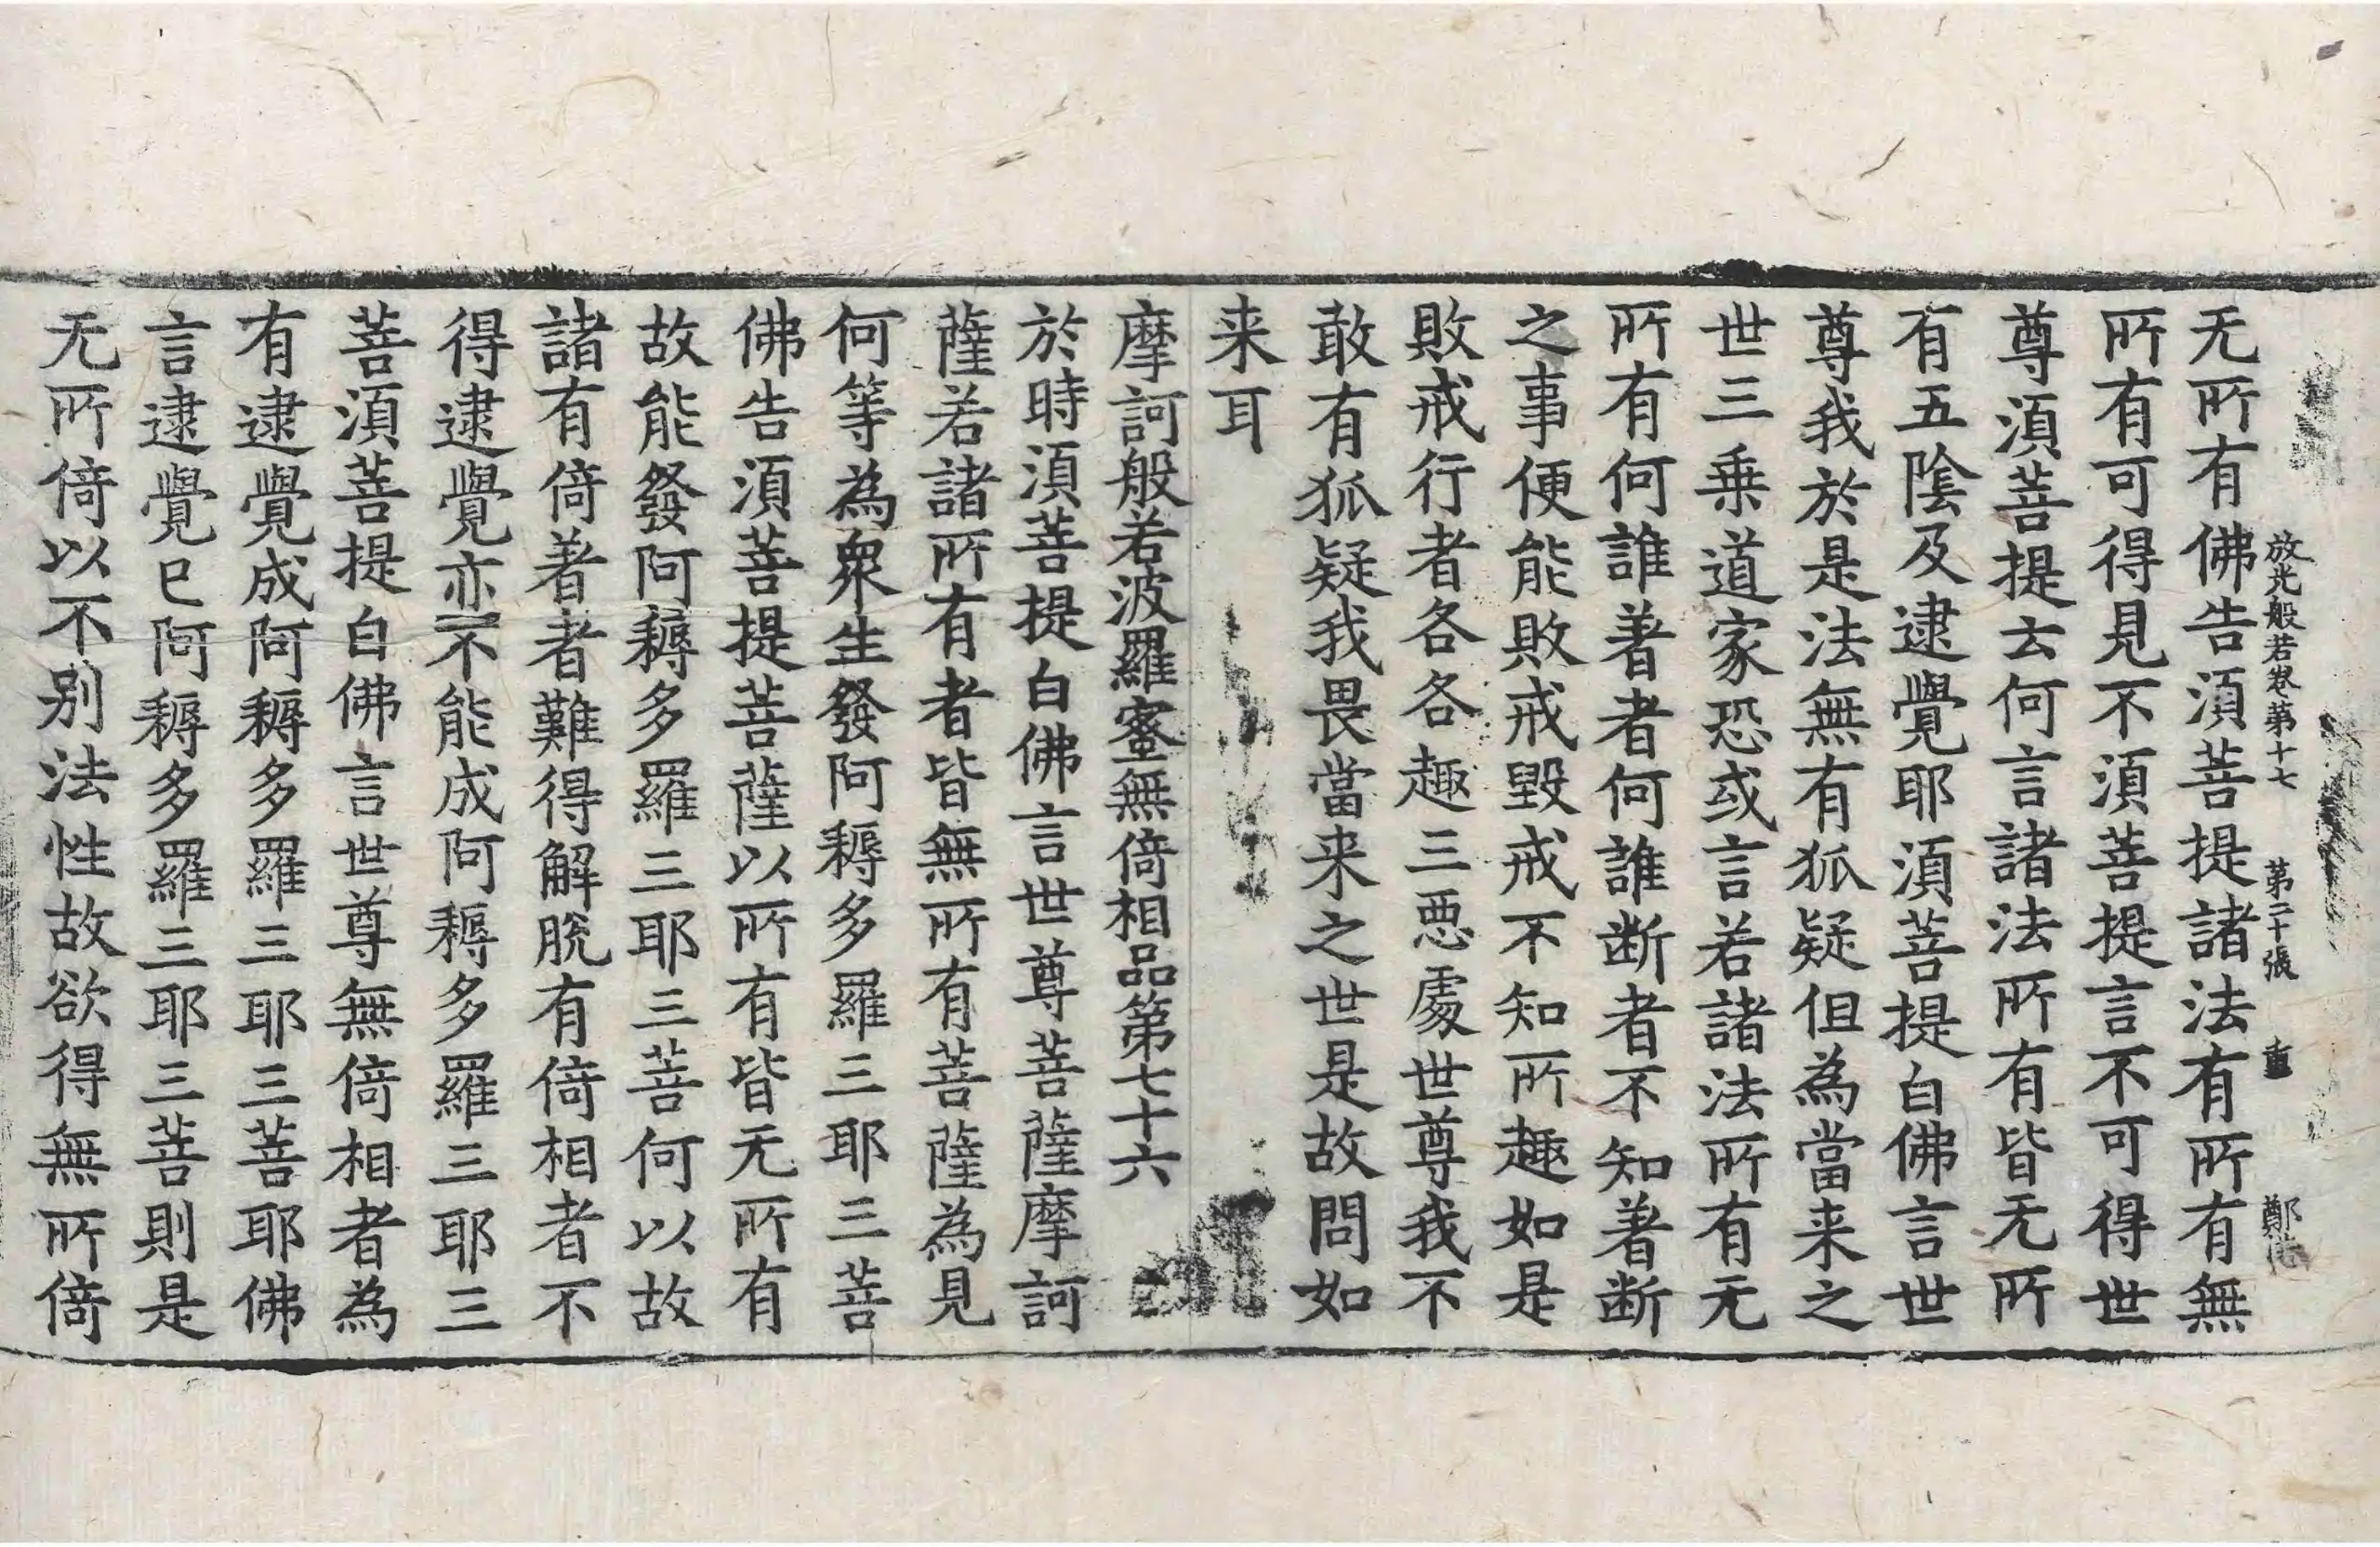 放光般若卷第十七 第二十張 重 鄭
无所有佛告須菩提諸法有所有無
所有可得見不須菩提言不可得世
尊須菩提云何言諸法所有皆无所
有五陰及逮覺耶須菩提白佛言世
尊我於是法無有狐疑但為當来之
世三乗道家恐或言若諸法所有无
所有何誰著者何誰断者不知著断
之事便能敗戒毀戒不知所趣如是
敗戒行者各各趣三惡處世尊我不
敢有狐疑我畏當来之世是故問如
来耳
摩訶般若波羅蜜無倚相品第七十六
於時須菩提白佛言世尊菩薩摩訶
薩若諸所有者皆無所有菩薩為見
何等為衆生發阿耨多羅三耶三菩
佛告須菩提菩薩以所有皆无所有
故能發阿耨多羅三耶三菩何以故
諸有倚著者難得解脫有倚相者不
得逮覺亦不能成阿耨多羅三耶三
菩須菩提白佛言世尊無倚相者為
有逮覺成阿耨多羅三耶三菩耶佛
言逮覺已阿耨多羅三耶三菩則是
无所倚以不别法性故欲得無所倚